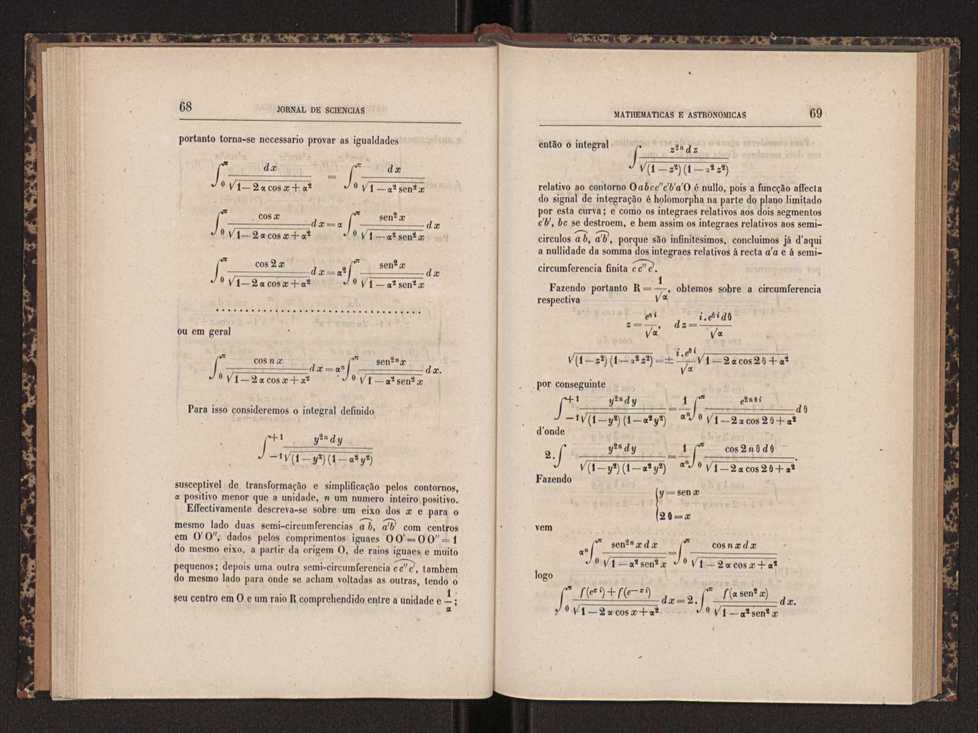 68
JORNAL DE SCIENCIAS
portanto torna-se necessario provar as igualdades
∫₀^π dx / √(1 − 2 α cos x + α²) = ∫₀^π dx / √(1 − α² sen² x)
∫₀^π cos x / √(1 − 2 α cos x + α²) dx = α ∫₀^π sen² x / √(1 − α² sen² x) dx
∫₀^π cos 2 x / √(1 − 2 α cos x + α²) dx = α² ∫₀^π sen² x / √(1 − α² sen² x) dx
. . . . . . . . . . . . . . . . . . . . . . . . . . . . . . . .
ou em geral
∫₀^π cos n x / √(1 − 2 α cos x + α²) dx = αⁿ ∫₀^π sen²ⁿ x / √(1 − α² sen² x) dx.
Para isso consideremos o integral definido
∫₋₁^+1 y²ⁿ dy / √((1 − y²) (1 − α² y²))
susceptivel de transformação e simplificação pelos contornos,
α positivo menor que a unidade, n um numero inteiro positivo.
Effectivamente descreva-se sobre um eixo dos x e para o
mesmo lado duas semi-circumferencias a b, a'b' com centros
em O' O'', dados pelos comprimentos iguaes O O' = O O'' = 1
do mesmo eixo, a partir da origem O, de raios iguaes e muito
pequenos; depois uma outra semi-circumferencia c c'' c', tambem
do mesmo lado para onde se acham voltadas as outras, tendo o
seu centro em O e um raio R comprehendido entre a unidade e 1/α;
MATHEMATICAS E ASTRONOMICAS
69
então o integral
∫ z²ⁿ d z / √((1 − z²) (1 − α² z²))
relativo ao contorno O a b c c'' c' b' a' O é nullo, pois a funcção affecta
do signal de integração é holomorpha na parte do plano limitado
por esta curva; e como os integraes relativos aos dois segmentos
c'b', bc se destroem, e bem assim os integraes relativos aos semi-
circulos a b, a'b', porque são infinitesimos, concluimos já d'aqui
a nullidade da somma dos integraes relativos á recta a'a e á semi-
circumferencia finita c c'' c'.
Fazendo portanto R = 1/√α, obtemos sobre a circumferencia
respectiva
z = e^θi / √α, dz = i . e^θi dθ / √α
√((1 − z²) (1 − α² z²)) = ± i . e^θi / √α √(1 − 2 α cos 2 θ + α²)
por conseguinte
∫₋₁^+1 y²ⁿ dy / √((1 − y²) (1 − α² y²)) = 1/αⁿ ∫₀^π e^2nθi / √(1 − 2 α cos 2 θ + α²) d θ
d'onde
2 . ∫ y²ⁿ dy / √((1 − y²) (1 − α² y²)) = 1/αⁿ ∫₀^π cos 2 n θ d θ / √(1 − 2 α cos 2 θ + α²).
Fazendo
{ y = sen x
{ 2 θ = x
vem
αⁿ ∫₀^π sen²ⁿ x d x / √(1 − α² sen² x) = ∫₀^π cos n x d x / √(1 − 2 α cos x + α²)
logo
∫₀^π f(e^xi) + f(e^−xi) / √(1 − 2 α cos x + α²) dx = 2 . ∫₀^π f(α sen² x) / √(1 − α² sen² x) dx.